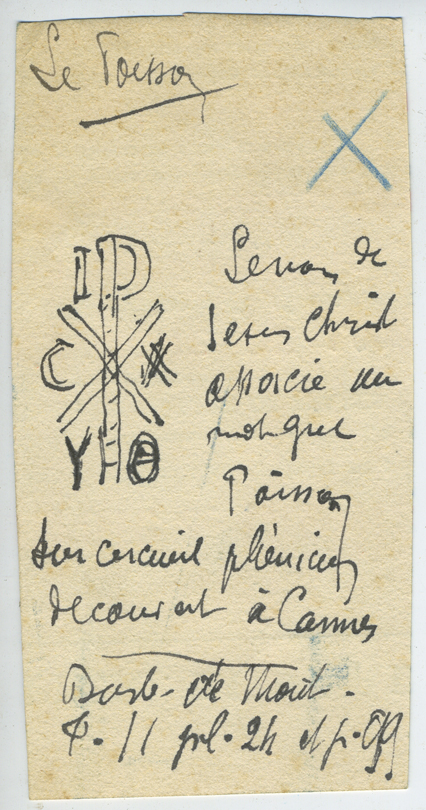 Le Poisson
I P
C X
Y Θ
Le nom de
Jesus Christ
associé au
mot grec
Poisson
sur cercueil phénicien
decouvert à Cannes
Barb. de Mont.
p. 11 pl. 24 et p.